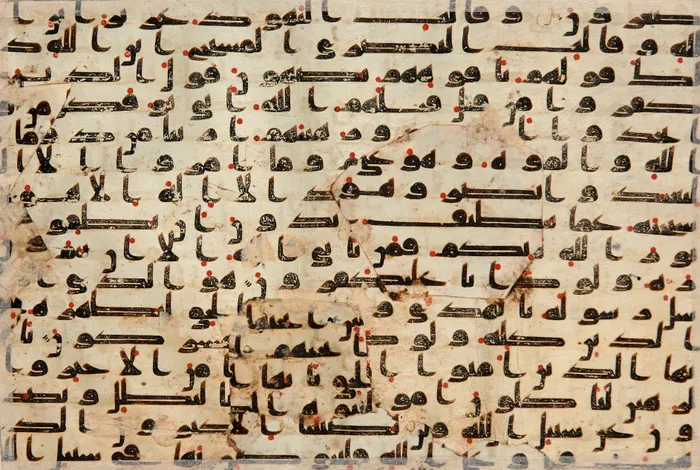 صغرون وقالت اليهود عزير ابن ا
لله وقالت النصرى المسيح ابن الله ذ
لك قولهم بافوههم يضهون قول الذين
كفروا من قبل قتلهم الله انى يوفكون
اتخذوا احبارهم ورهبنهم اربابا من دون
الله والمسيح ابن مريم وما امروا الا
ليعبدوا الها وحدا لا اله الا هو
سبحنه عما يشركون يريدون ان يطفوا
نور الله بافوههم ويابى الله الا ان يتم
نوره ولو كره الكفرون هو الذى ا
رسل رسوله بالهدى ودين الحق ليظهره
على الدين كله ولو كره المشركون
يايها الذين امنوا ان كثيرا من الاحبار و
الرهبن لياكلون امول الناس بالبطل ويصد
ون عن سبيل الله والذين يكنزون الذهب
والفضه ولا ينفقونها فى سبيل ا